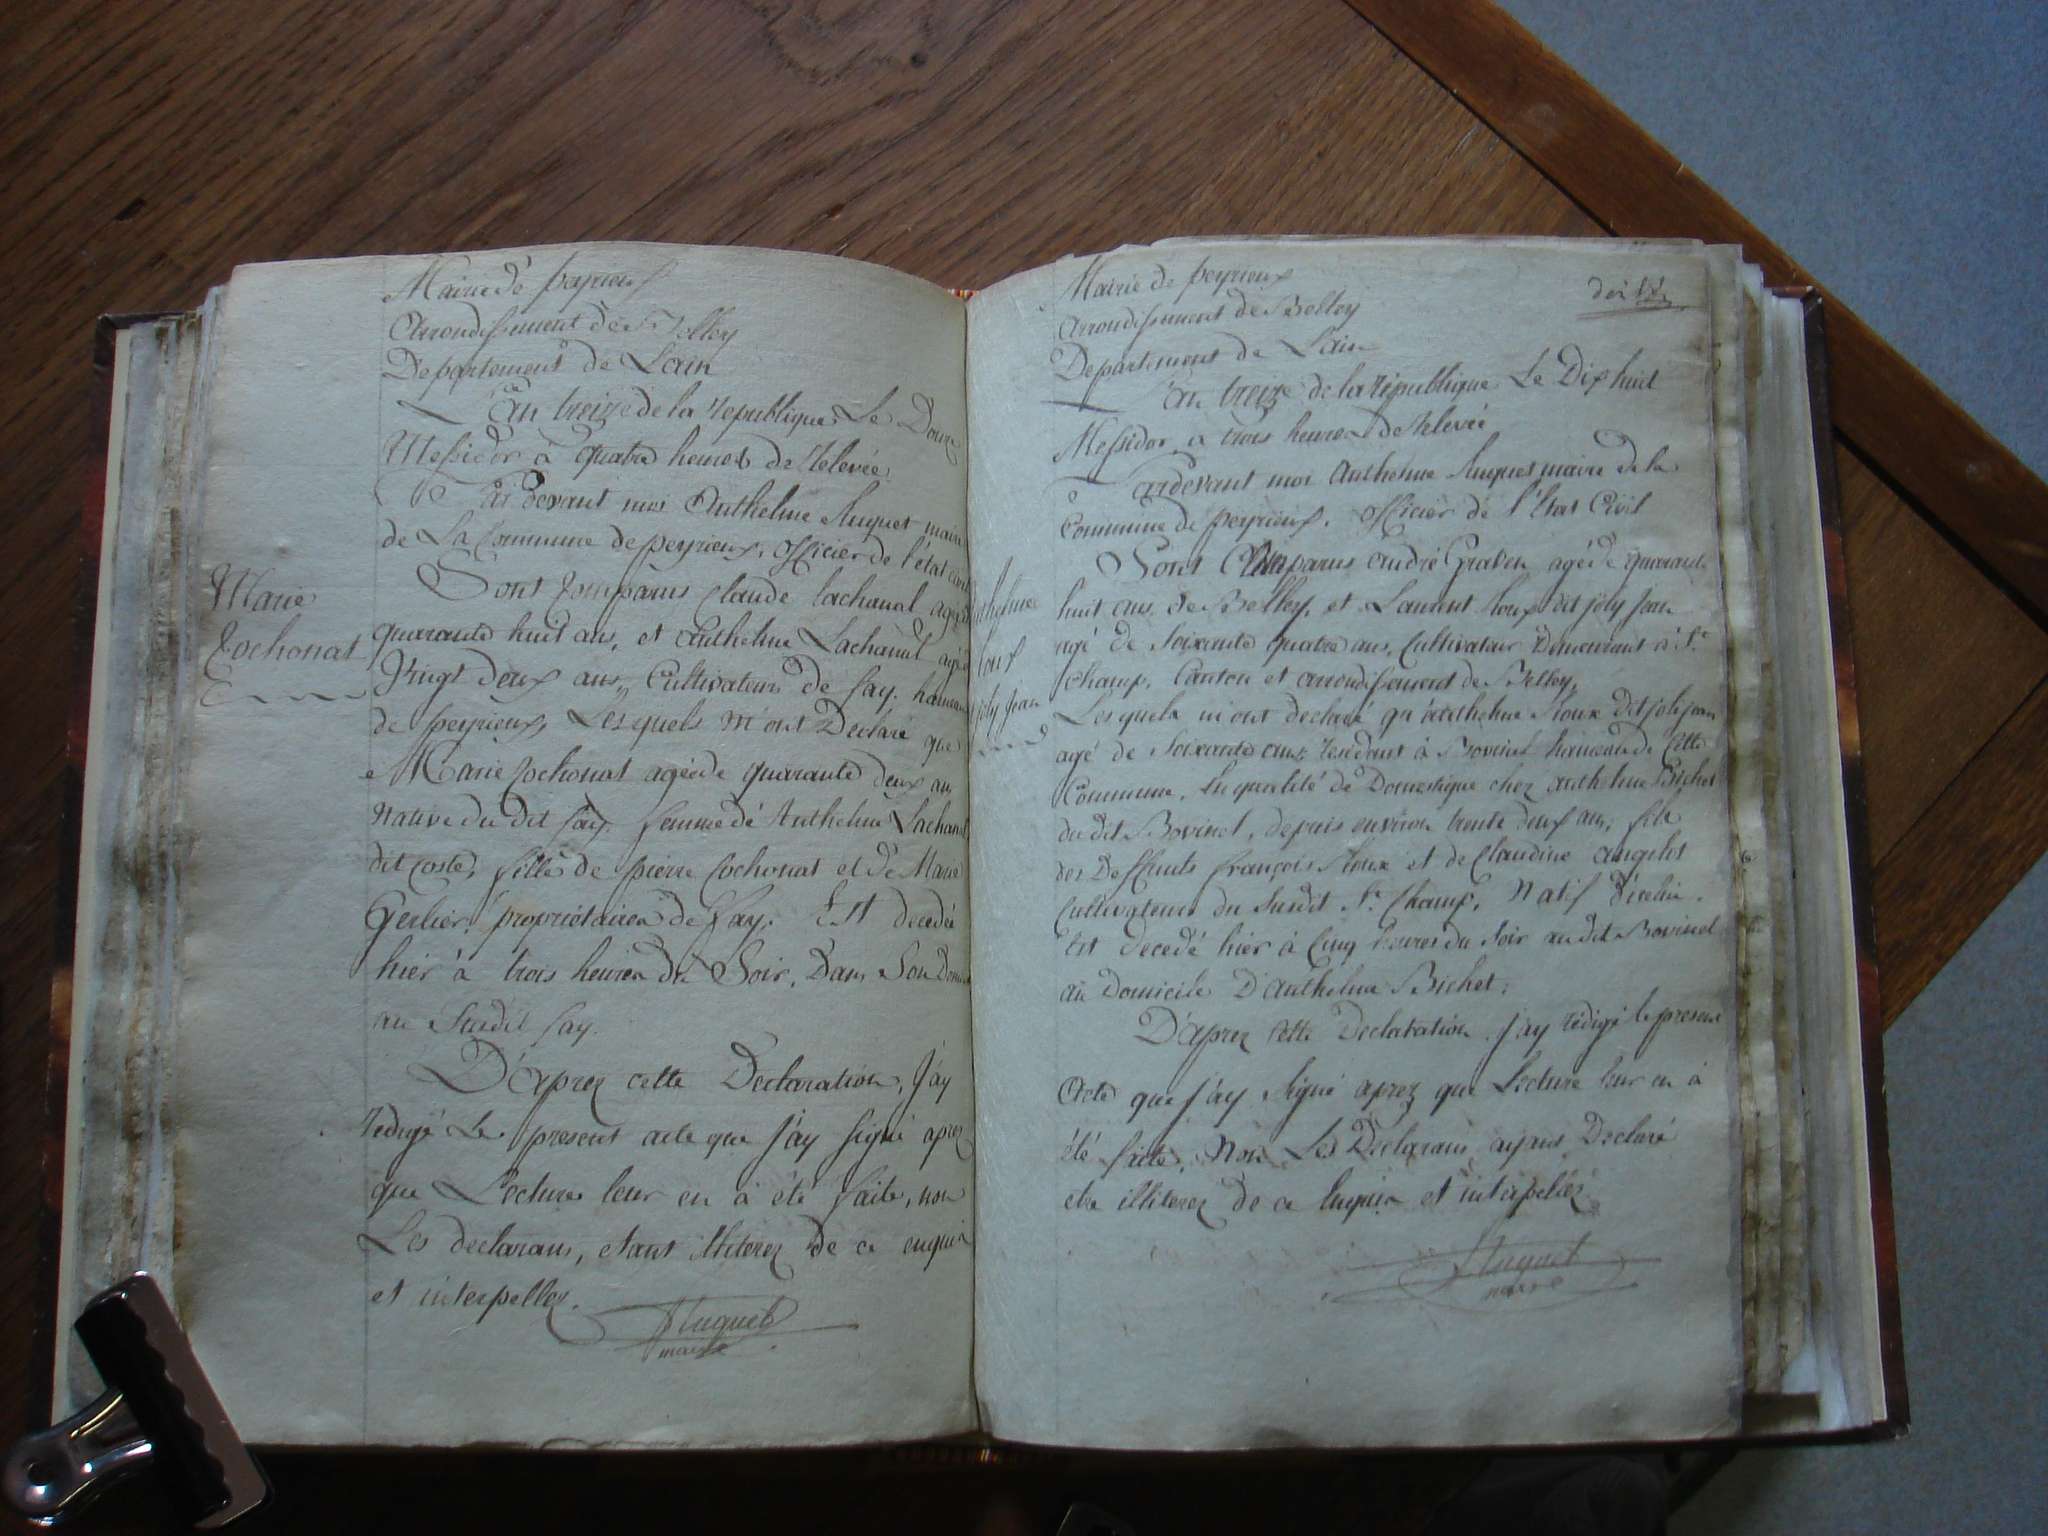 Mairie de peyrieux
Arrondissement de Belley
Departement de Lain
L'an treize de la republique Le Douze
Messidor à quatre heures de relevée
Par devant moi Anthelme huguet maire
de La Commune de peyrieux, officier de l'état civil
Sont Comparus Claude Lachanal agé de
quarante huit ans, et Anthelme Lachanal agé de
Vingt deux ans, Cultivateurs de fay, hameau
de peyrieux, Lesquels m'ont Declaré que
Marie Cochonat agée de quarante deux ans
Native du dit fay, femme de Anthelme Lachanal
dit coste, fille de pierre Cochonat et de Marie
Gerlier, propriétaires de fay. Est decedée
hier à trois heures du Soir, Dans Son Domicile
au Susdit fay.
D'aprez cette Declaration, J'ay
redigé Le present acte que J'ay Signé aprez
que Lecture leur en à été faite, non
Les declarans, etant illiterez de ce enquis
et interpellez.
Huguet
maire
Marie
Cochonat
Mairie de peyrieux
Arrondissement de Belley
Departement de Lain
L'an treize de la republique Le Dix huit
Messidor à trois heures de relevée
Pardevant moi Anthelme huguet maire de la
Commune de peyrieux, officier de l'Etat Civil
Sont Comparus André Graben agé de quarante
huit ans, de Belley, et Laurent Roux dit joly jean
agé de Soixante quatre ans, Cultivateur Demeurant à St.
champ, Canton et arrondissement de Belley,
Lesquels m'ont declaré qu'Anthelme Roux dit joli jean
agé de Soixante ans, residant à Bovinel hameau de Cette
Commune, En qualité de Domestique chez Anthelme Bichet
du dit Bovinel, depuis environ trente deux ans, fils
des Deffunts françois Roux et de Claudine
Cultivateurs du Susdit St. Champ, Natif
Est decedé hier à Cinq heures du Soir au dit Bovinel
au Domicile D'Anthelme Bichet.
D'aprez cette Declaration J'ay redigé le present
Acte que J'ay Signé aprez que Lecture leur en à
été faite, Non Les Declarans ayant Declaré
etre illiterez de ce Enquis et interpellez
Huguet
maire
Anthelme
Roux
joly jean